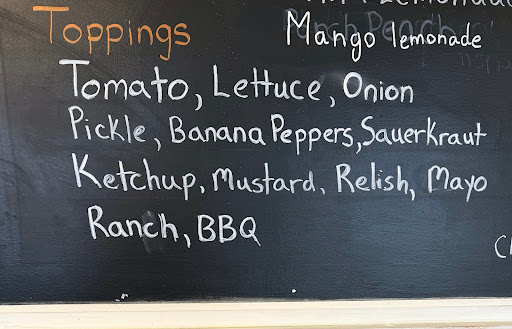 Toppings
Mango lemonade
Tomato, Lettuce, Onion
Pickle, Banana Peppers, Sauerkraut
Ketchup, Mustard, Relish, Mayo
Ranch, BBQ